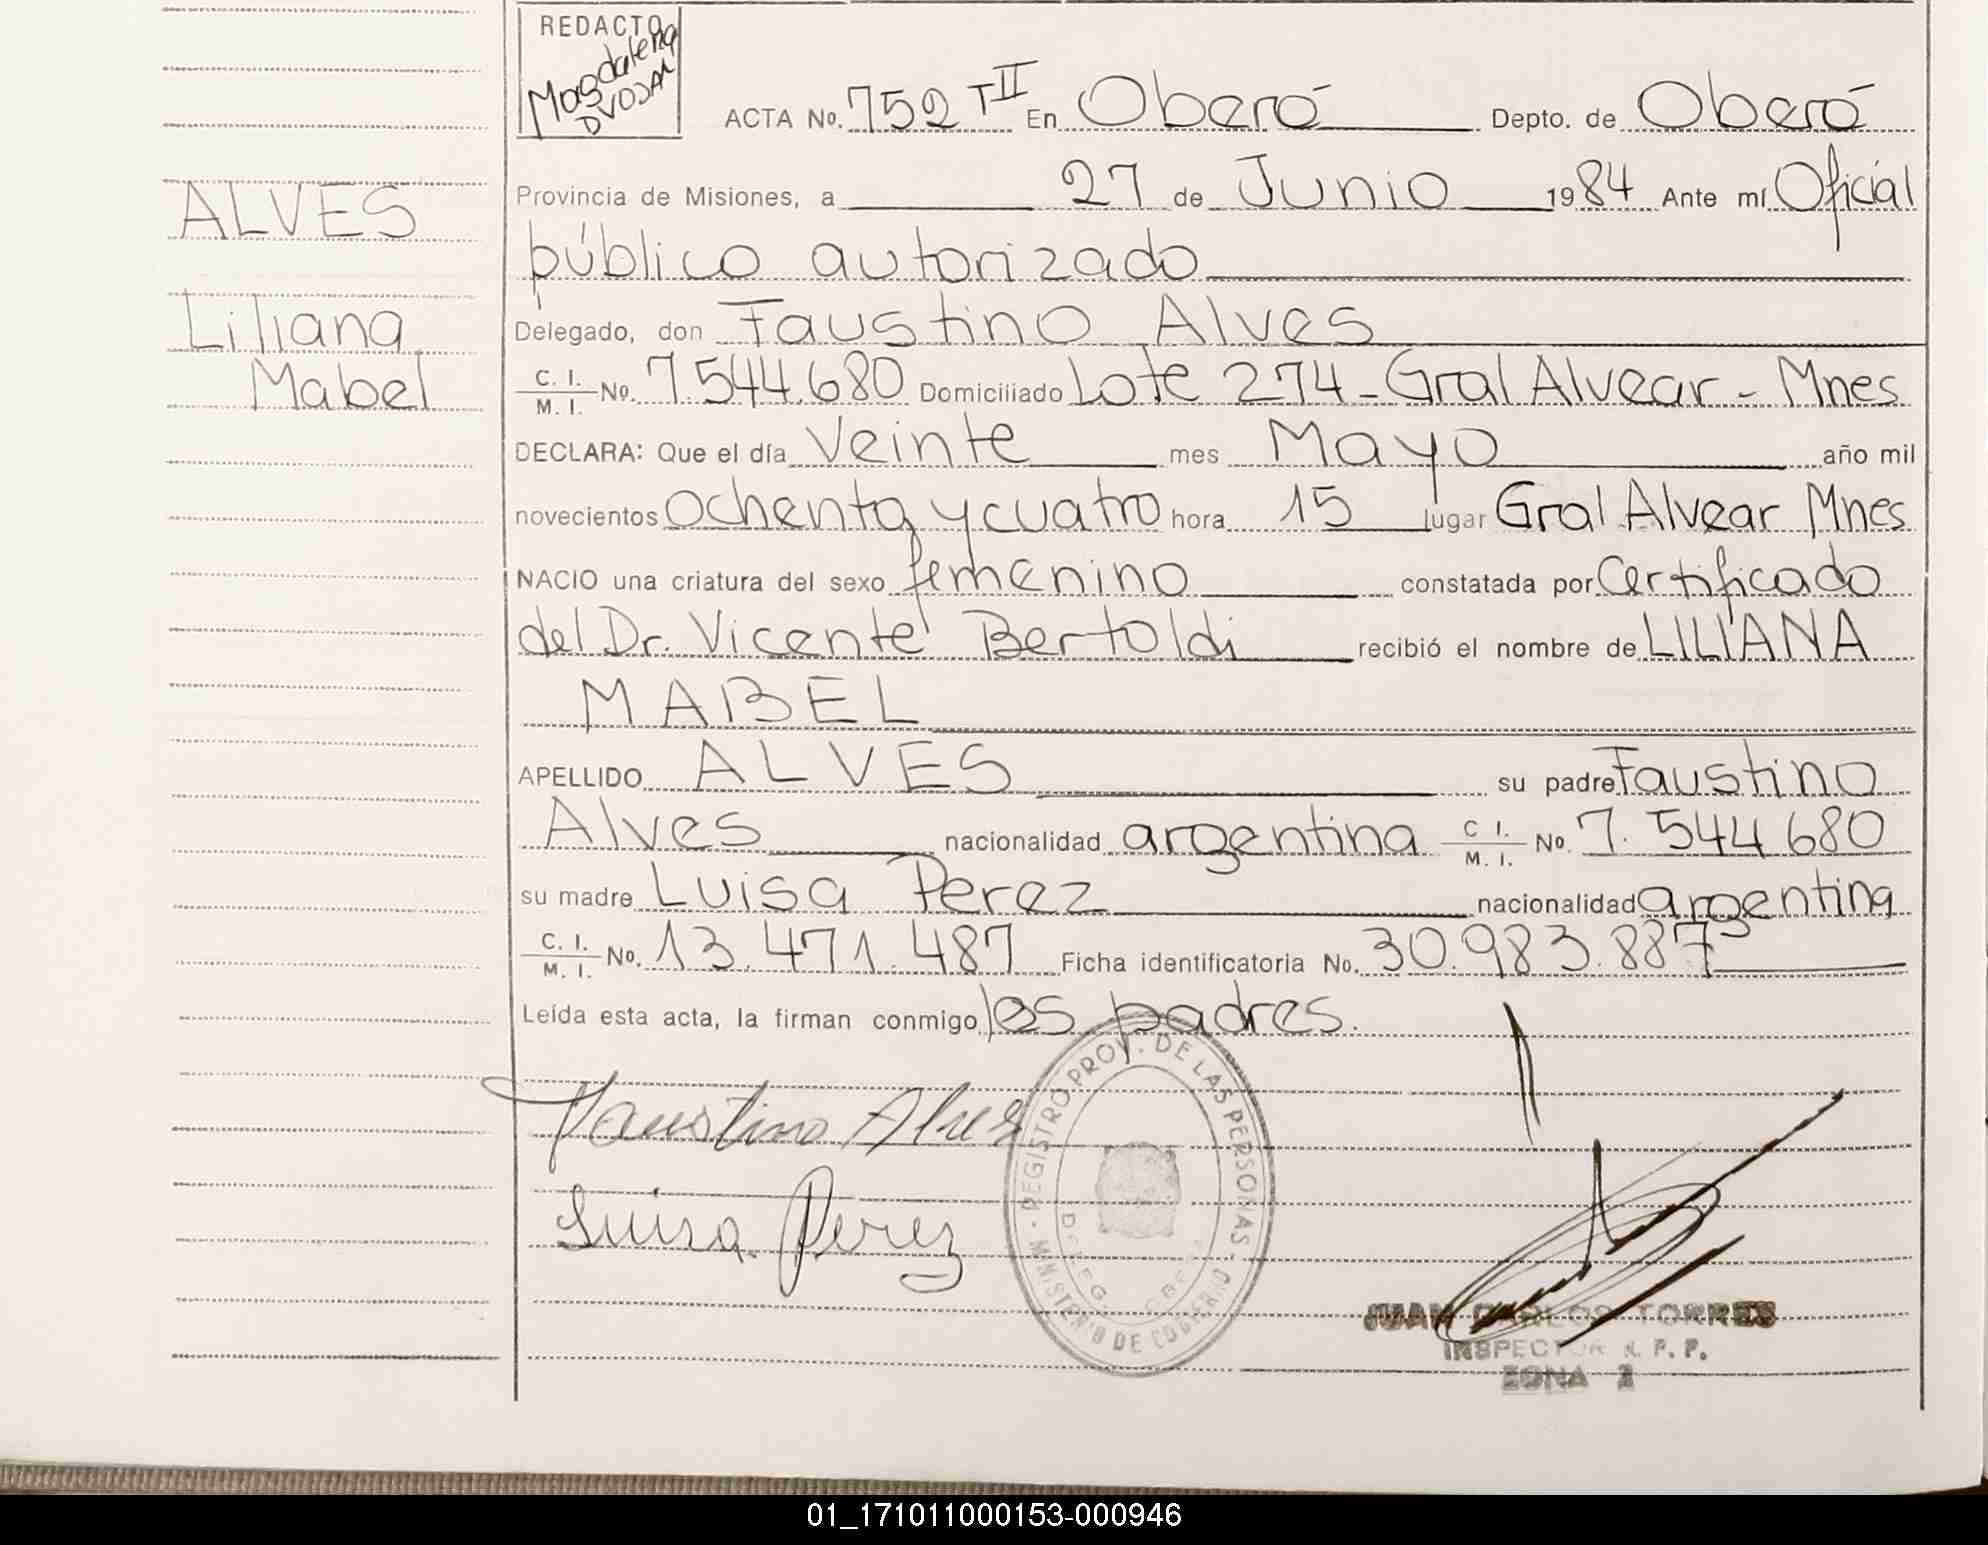 REDACTO
Magdalena
DVOJAK
ACTA No. 752 TII En Oberá Depto. de Oberá
Provincia de Misiones, a 27 de Junio 1984 Ante mí Oficial
público autorizado
Delegado, don Faustino Alves
C. I. / M. I. No. 7.544.680 Domiciliado Lote 274 - Gral Alvear - Mnes
DECLARA: Que el día Veinte mes Mayo año mil
novecientos ochenta y cuatro hora 15 lugar Gral Alvear Mnes
NACIO una criatura del sexo femenino constatada por Certificado
del Dr. Vicente Bertoldi recibió el nombre de LILIANA
MABEL
APELLIDO ALVES su padre Faustino
Alves nacionalidad argentina C. I. / M. I. No. 7.544.680
su madre Luisa Perez nacionalidad argentina
C. I. / M. I. No. 13.471.487 Ficha identificatoria No. 30.983.887
Leída esta acta, la firman conmigo los padres.
ALVES
Liliana
Mabel
Faustino Alves
Luisa Perez
REGISTRO PROV. DE LAS PERSONAS
MINISTERIO DE GOBIERNO
JUAN CARLOS TORRES
INSPECTOR R. P. P.
ZONA 2
01_171011000153-000946